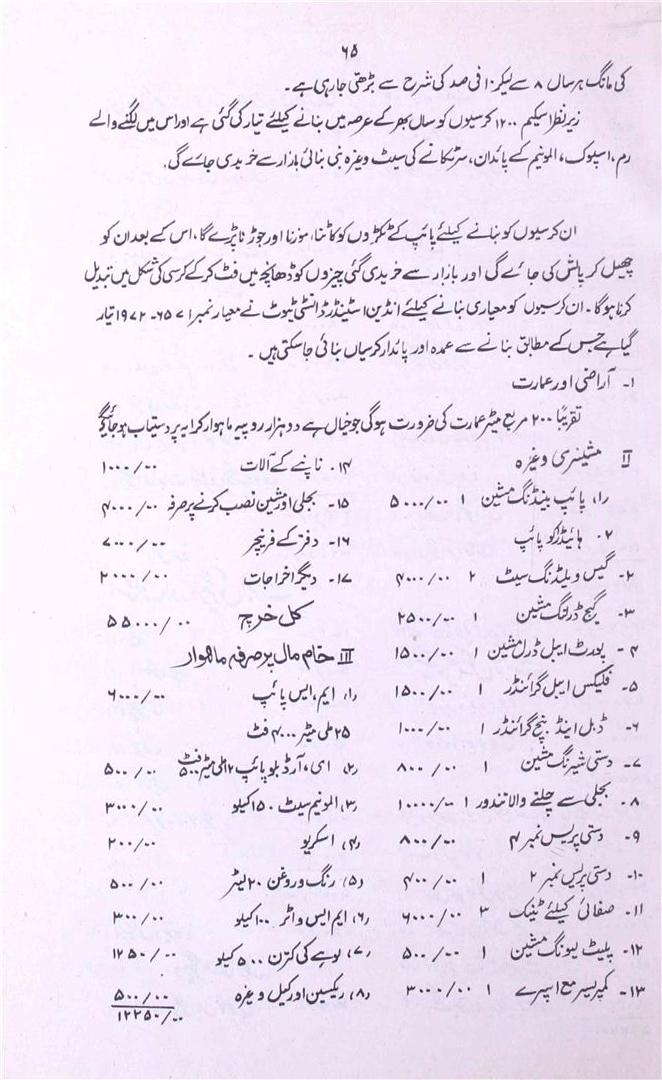 ۶۵
کی مانگ ہر سال ۸ سے لیکر ۱۰ فی صد کی شرح سے بڑھتی جا رہی ہے۔
زیر نظر اسکیم ۱۲۰۰ کرسیوں کو سال بھر کے عرصہ میں بنانے کیلئے تیار کی گئی ہے اور اس میں لگنے والے
رم، اسپوک، المونیم کے پائدان، سر ٹکانے کی سیٹ وغیرہ بنی بنائی بازار سے خریدی جائے گی.
ان کرسیوں کو بنانے کیلئے پائپ کے ٹکڑوں کو کاٹنا، موڑنا اور جوڑنا پڑے گا، اس کے بعد ان کو
چھیل کر پالش کی جائے گی اور بازار سے خریدی گئی چیزوں کو ڈھانچے میں فٹ کر کے کرسی کی شکل میں تبدیل
کرنا ہوگا۔ ان کرسیوں کو معیاری بنانے کیلئے انڈین اسٹینڈرڈ انسٹی ٹیوٹ نے معیار نمبر ۶۵۷۱-۱۹۷۲ تیار
کیا ہے جس کے مطابق بنانے سے عمدہ اور پائدار کرسیاں بنائی جاسکتی ہیں۔
۱- آراضی اور عمارت
تقریباً ۲۰۰ مربع میٹر عمارت کی ضرورت ہوگی جو خیال ہے دو ہزار روپیہ ماہوار کرایہ پر دستیاب ہو جائیگی
II مشینری وغیرہ
(۱) پائپ بینڈنگ مشین ۱ ۵۰۰۰/۰۰
۲. ہائیڈرکو پائپ
۲- گیس ویلڈنگ سیٹ ۲ ۴۰۰۰/۰۰
۳- گیج ڈرلنگ مشین ۱ ۲۵۰۰/۰۰
۴- پورٹ ایبل ڈرل مشین ۱ ۱۵۰۰/۰۰
۵- فلیکس ایبل گرائنڈر ۱ ۱۵۰۰/۰۰
۶- ڈبل اینڈ بنچ گرائنڈر ۱ ۱۰۰۰/۰۰
۷- دستی شیرنگ مشین ۱ ۸۰۰/۰۰
۸- بجلی سے چلنے والا تندور ۱ ۱۰۰۰۰/۰۰
۹- دستی پریس نمبر ۴ ۸۰۰/۰۰
۱۰- دستی پریس نمبر ۲ ۱ ۴۰۰/۰۰
۱۱- صفائی کیلئے ٹینک ۳ ۶۰۰۰/۰۰
۱۲- پلیٹ مشین ۱ ۵۰۰/۰۰
۱۳- کمپریسر مع اسپرے ۱ ۳۰۰۰/۰۰
۱۴- ناپنے کے آلات ۱۰۰۰/۰۰
۱۵- بجلی اور مشین نصب کرنے پر صرفہ ۴۰۰۰/۰۰
۱۶- دفتر کے فرنیچر ۷۰۰۰/۰۰
۱۷- دیگر اخراجات ۲۰۰۰/۰۰
کل خرچ ۵۵۰۰۰/۰۰
III خام مال پر صرفہ ماہوار
(۱) ایم، ایس پائپ ۶۰۰۰/۰۰
۲۵ ملی میٹر ۴۰۰۰ فٹ
(۲) ای، آر ڈبلو پائپ ۱۲ ملی میٹر ۵۰۰ فٹ ۵۰۰/۰۰
(۳) المونیم سیٹ ۱۵۰ کیلو ۳۰۰۰/۰۰
(۴) اسکریو ۲۰۰/۰۰
(۵) رنگ و روغن ۲۰ لیٹر ۵۰۰/۰۰
(۶) ایم ایس واٹر ۱۰۰ کیلو ۳۰۰/۰۰
(۷) لوہے کی کترن ۵۰۰ کیلو ۱۲۵۰/۰۰
(۸) ریکسین اور کیل وغیرہ ۵۰۰/۰۰
۱۲۲۵۰/۰۰